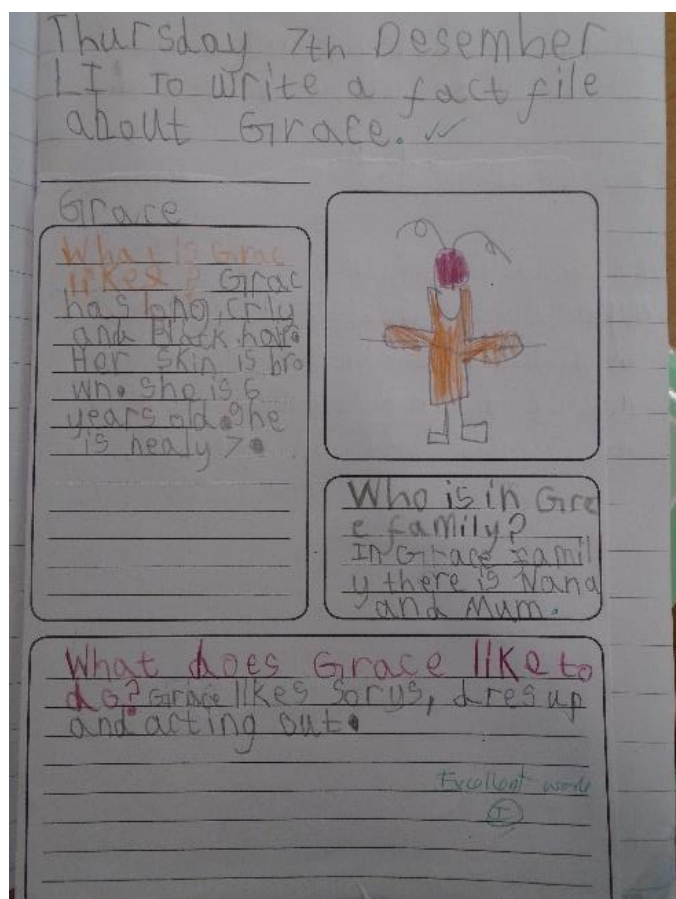 Thursday 7th Desember
LI To write a fact file
about Grace.
Grace
What is Grac
likes? Grac
has long, crly
and black hair.
Her skin is bro
wn. She is 6
years old. She
is nealy 7.
Who is in Grac
e family?
In Grace famil
y there is Nana
and Mum.
What does Grace like to
do? Grace likes sorys, dres up
and acting out.
Excellent work
I